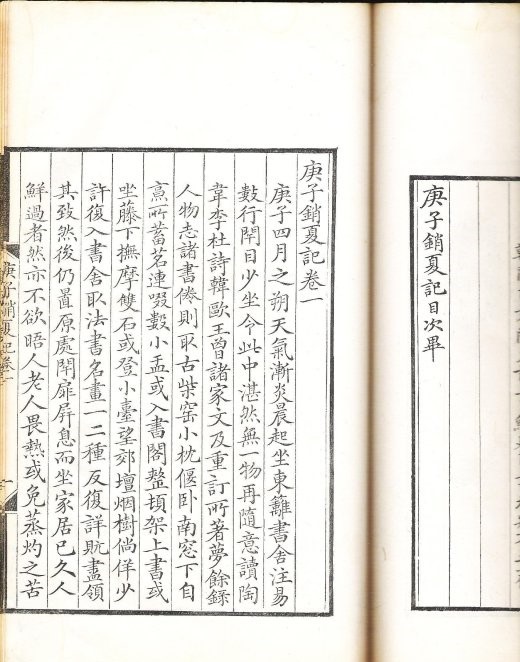 庚子銷夏記目次畢
庚子銷夏記卷一
庚子四月之朔天氣漸炎晨起坐東籬書舍注易
數行閉目少坐令此中湛然無一物再隨意讀陶
韋李杜詩韓歐王曾諸家文及重訂所著夢餘錄
人物志諸書倦則取古柴窑小枕偃卧南窓下自
烹所蓄茗連啜數小盂或入書閣整頓架上書或
坐藤下撫摩雙石或登小臺望郊壇烟樹倘佯少
許復入書舍取法書名畫一二種反復詳玩盡領
其致然後仍置原處閉扉屏息而坐家居已久人
鮮過者然亦不欲晤人老人畏熱或免蒸灼之苦
庚子銷夏記卷一